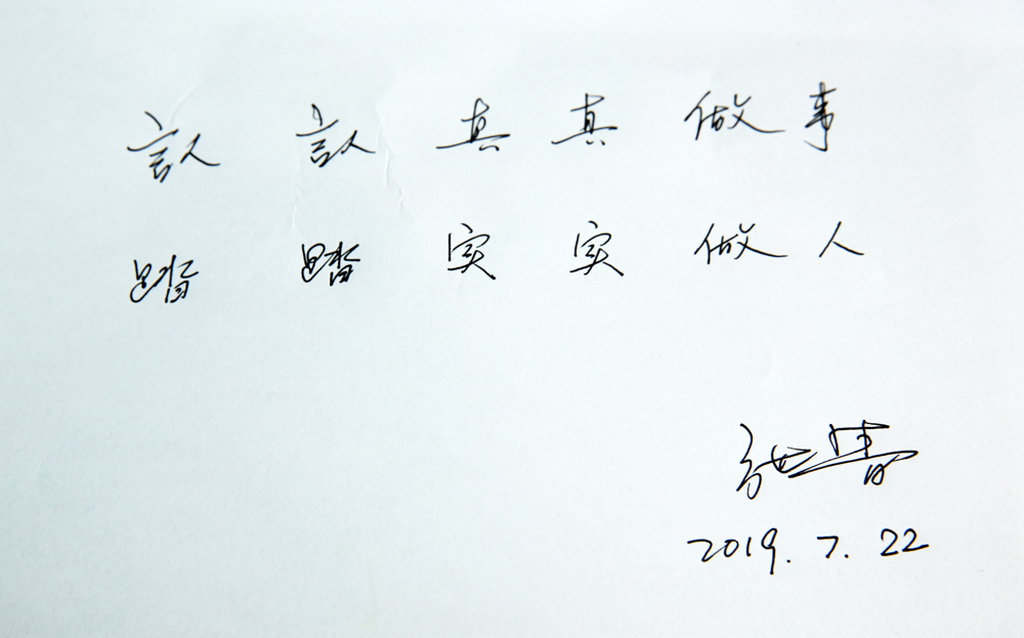 认认真真做事
踏踏实实做人
2019.7.22